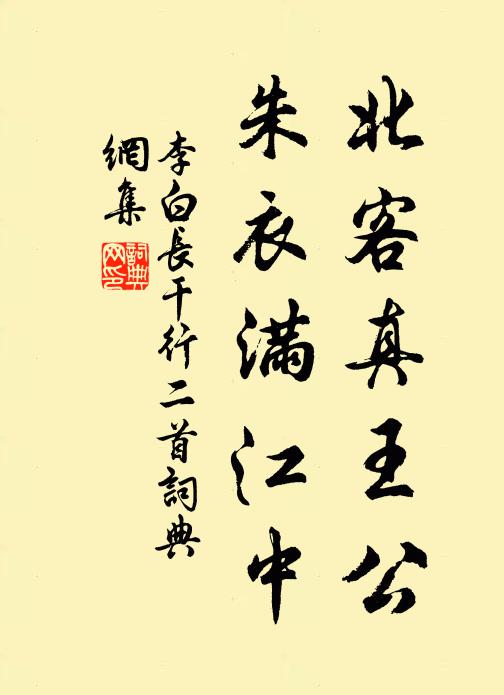 北客真王公
朱衣满江中
李白長干行二首詞典
網集
詞典
网印